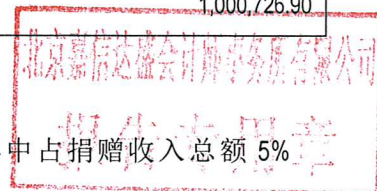 1,000,726.90
北京嘉信达盛会计师事务所有限公司
中占捐赠收入总额 5%